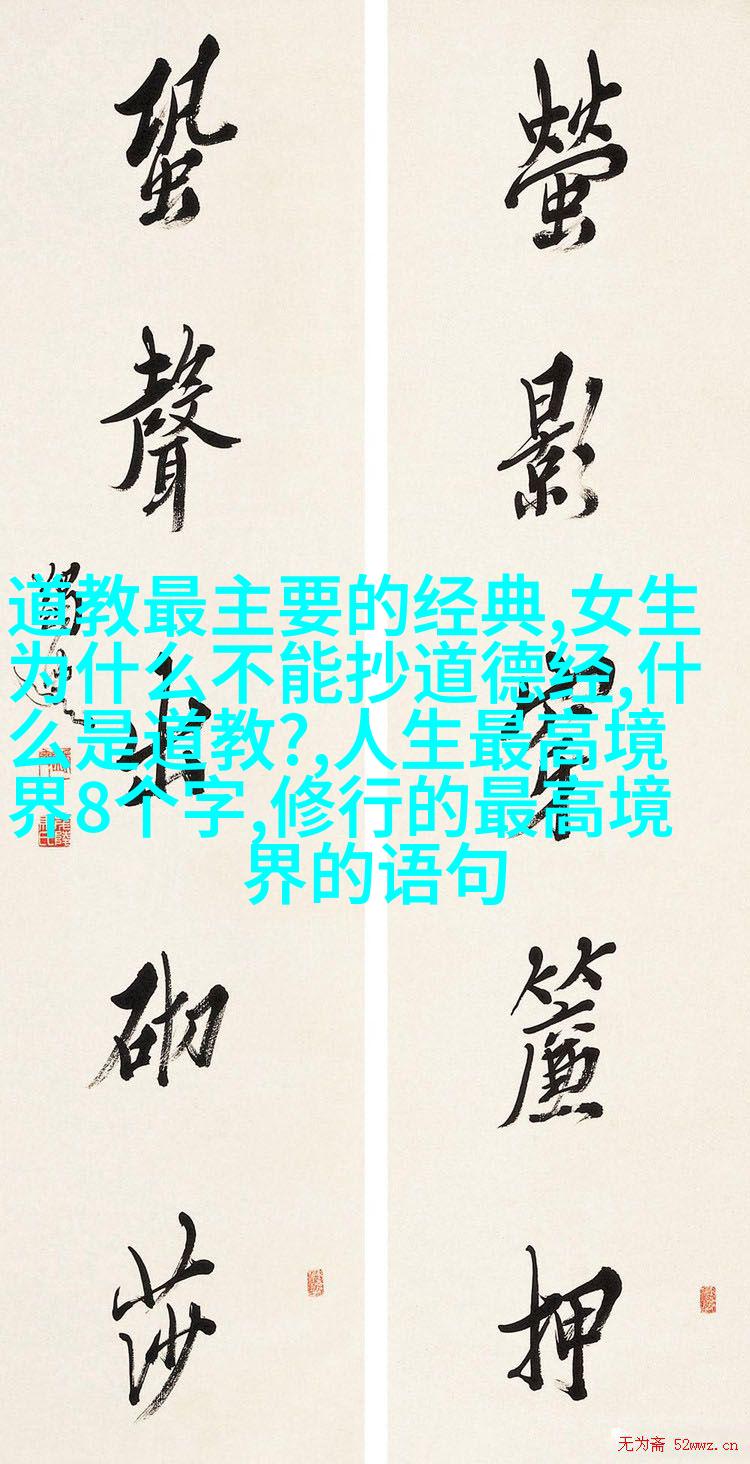 螢影穿簾押
蛩聲砌莎
道教最主要的经典,女生
为什么不能抄道德经,什
么是道教?,人生最高境
界8个字,修行的最高境
界的语句
无为斋 52wwz.cn